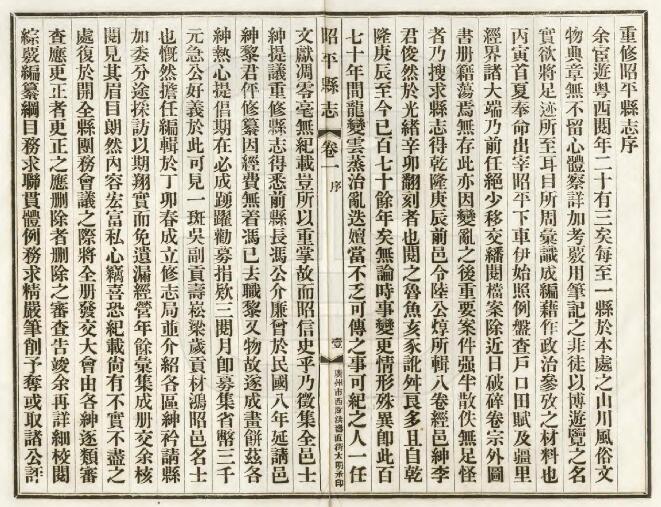 重修昭平縣志序
余宦遊粵西閱年二十有三矣每至一縣於本處之山川風俗文
物典章無不留心體察詳加考覈用筆記之非徒以博遊覽之名
實欲將足迹所至耳目所周彙識成編藉作政治參攷之材料也
丙寅首夏奉命出宰昭平下車伊始照例盤查戶口田賦及疆里
經界諸大端乃前任絕少移交繙閱檔案除近日破碎卷宗外圖
書册籍蕩焉無存此亦因變亂之後重要案件强半散佚無足怪
者乃搜求縣志得乾隆庚辰前邑令陸公焞所輯八卷經邑紳李
君俊然於光緒辛卯翻刻者也閱之魯魚亥豕訛舛良多且自乾
隆庚辰至今已百七十餘年矣無論時事變更情形殊異卽此百
七十年間龍變雲蒸治亂迭嬗當不乏可傳之事可紀之人一任
昭平縣志 卷一 序
壹
廣州市西湖街大同承印
文獻凋零毫無紀載豈所以重掌故而昭信史乎乃徵集全邑士
紳提議重修縣志得悉前縣長馮公介廉曾於民國八年延請邑
紳黎君伻修纂因經費無着馮已去職黎又物故遂成畫餅茲各
紳熱心提倡期在必成踴躍勸募捐欵三閱月卽募集省幣三千
元急公好義於此可見一斑吳副貢壽崧梁歲貢材鴻昭邑名士
也慨然擔任編輯於丁卯春成立修志局並介紹各區紳衿請縣
加委分途採訪以期翔實而免遺漏經營年餘彙集成册交余核
閱見其眉目朗然內容宏富私心竊喜恐紀載倘有不實不盡之
處復於開全縣團務會議之際將全册發交大會由各紳逐類審
查應更正者更正之應删除者删除之審查告竣余再詳細校閱
綜覈編纂綱目務求聯貫體例務求精嚴筆削予奪或取諸公評